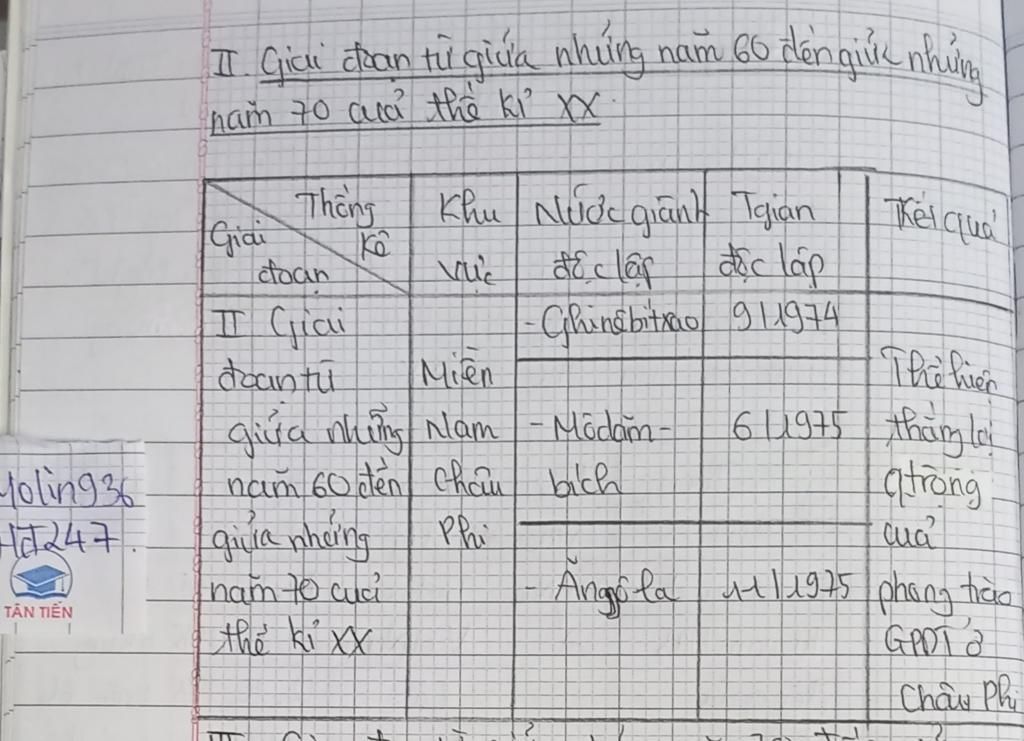 II. Giai đoạn từ giữa những năm 60 đến giữa những
năm 70 của thế kỉ XX.
Thống kê
Giai đoạn
Khu vực
Nước giành độc lập
Tgian độc lập
Kết quả
II Giai
đoạn từ
giữa những
năm 60 đến
giữa những
năm 70 của
thế kỉ XX
Miền
Nam
châu
Phi
- Ghinêbitxao
9/1974
- Môdăm-
bích
6/1975
- Ăngôla
11/1975
Thể hiện
thắng lợi
qtrọng
của
phong trào
GPDT ở
Châu Phi
Yolin936
HJ247.
TÂN TIẾN